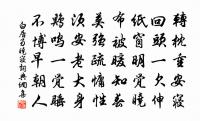 轉枕重安寢
回頭一欠伸
紙窗明覺曉
布被暖知春
莫強疏慵性
須安老大身
鷄鳴一覺睡
不博早朝人
白居易曉寢詞典網書